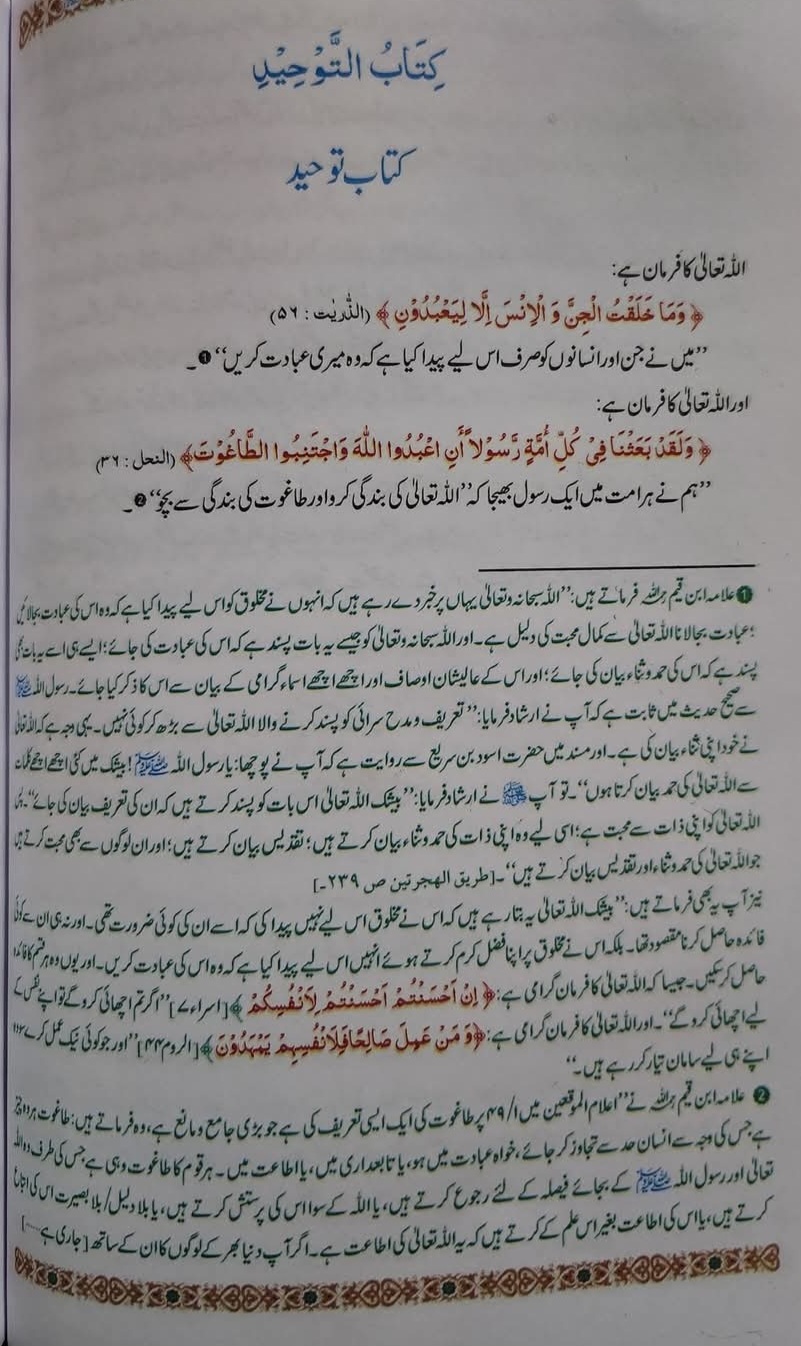 كِتَابُ التَّوْحِيْدِ
کتاب توحید
اللہ تعالیٰ کا فرمان ہے:
﴿ وَمَا خَلَقْتُ الْجِنَّ وَ الْاِنْسَ اِلَّا لِيَعْبُدُوْنِ ﴾ (الذّٰریٰت : ۵۶)
’’میں نے جن اور انسانوں کو صرف اس لیے پیدا کیا ہے کہ وہ میری عبادت کریں‘‘ ❶ ۔
اور اللہ تعالیٰ کا فرمان ہے:
﴿ وَلَقَدْ بَعَثْنَا فِيْ كُلِّ اُمَّةٍ رَّسُوْلاً أَنِ اعْبُدُوا اللهَ وَاجْتَنِبُوا الطَّاغُوْتَ﴾ (النحل : ۳۶)
’’ہم نے ہر امت میں ایک رسول بھیجا کہ ’’اللہ تعالیٰ کی بندگی کرو اور طاغوت کی بندگی سے بچو‘‘ ❷ ۔
❶ علامہ ابن قیم رحمہ اللہ فرماتے ہیں: ’’اللہ سبحانہ وتعالیٰ یہاں پر خبر دے رہے ہیں کہ انہوں نے مخلوق کو اس لیے پیدا کیا ہے کہ وہ اس کی عبادت بجالائیں
؛ عبادت بجالانا اللہ تعالیٰ سے کمال محبت کی دلیل ہے۔ اور اللہ سبحانہ وتعالیٰ کو جیسے یہ بات پسند ہے کہ اس کی عبادت کی جائے؛ ایسے ہی اسے یہ بات بھی
پسند ہے کہ اس کی حمد و ثناء بیان کی جائے؛ اور اس کے عالیشان اوصاف اور اچھے اچھے اسماء گرامی کے بیان سے اس کا ذکر کیا جائے۔ رسول اللہ ﷺ
سے صحیح حدیث میں ثابت ہے کہ آپ نے ارشاد فرمایا: ’’تعریف و مدح سرائی کو پسند کرنے والا اللہ تعالیٰ سے بڑھ کر کوئی نہیں۔ یہی وجہ ہے کہ اللہ تعالیٰ
نے خود اپنی ثناء بیان کی ہے۔ اور مسند میں حضرت اسود بن سریع سے روایت ہے کہ آپ نے پوچھا: یا رسول اللہ ﷺ! بیشک میں کئی اچھے اچھے کلمات
سے اللہ تعالیٰ کی حمد بیان کرتا ہوں‘‘۔ تو آپ ﷺ نے ارشاد فرمایا: ’’بیشک اللہ تعالیٰ اس بات کو پسند کرتے ہیں کہ ان کی تعریف بیان کی جائے‘‘۔
اللہ تعالیٰ کو اپنی ذات سے محبت ہے؛ اسی لیے وہ اپنی ذات کی حمد و ثناء بیان کرتے ہیں؛ تقدیس بیان کرتے ہیں؛ اور ان لوگوں سے بھی محبت کرتے ہیں
جو اللہ تعالیٰ کی حمد و ثناء اور تقدیس بیان کرتے ہیں‘‘۔ [طریق الهجرتین ص ۲۳۹۔]
نیز آپ یہ بھی فرماتے ہیں: ’’بیشک اللہ تعالیٰ یہ بتا رہے ہیں کہ اس نے مخلوق اس لیے نہیں پیدا کی کہ اسے ان کی کوئی ضرورت تھی۔ اور نہ ہی ان سے کوئی
فائدہ حاصل کرنا مقصود تھا۔ بلکہ اس نے مخلوق پر اپنا فضل کرم کرتے ہوئے انہیں اس لیے پیدا کیا ہے کہ وہ اس کی عبادت کریں۔ اور یوں وہ ہر قسم کا فائدہ
حاصل کر سکیں۔ جیسا کہ اللہ تعالیٰ کا فرمان گرامی ہے: ﴿اِنْ اَحْسَنْتُمْ اَحْسَنْتُمْ لِاَنْفُسِكُمْ﴾ [اسراء ۷] ’’اگر تم اچھائی کرو گے تو اپنے نفس کے
لیے اچھائی کرو گے‘‘۔ اور اللہ تعالیٰ کا فرمان گرامی ہے: ﴿وَ مَنْ عَمِلَ صَالِحًا فَلِاَنْفُسِهِمْ يَمْهَدُوْنَ﴾ [الروم ۴۴] ’’اور جو کوئی نیک عمل کرے سو وہ
اپنے ہی لیے سامان تیار کر رہے ہیں۔‘‘
❷ علامہ ابن قیم رحمہ اللہ نے ’’اعلام الموقعین میں ۴۹/۱ پر طاغوت کی ایک ایسی تعریف کی ہے جو بڑی جامع و مانع ہے، وہ فرماتے ہیں: طاغوت ہر وہ چیز
ہے جس کی وجہ سے انسان حد سے تجاوز کر جائے، خواہ عبادت میں ہو، یا تابعداری میں، یا اطاعت میں۔ ہر قوم کا طاغوت وہی ہے جس کی طرف وہ اللہ
تعالیٰ اور رسول اللہ ﷺ کے بجائے فیصلہ کے لئے رجوع کرتے ہیں، یا اللہ کے سوا اس کی پرستش کرتے ہیں، یا بلا دلیل/ بلا بصیرت اس کی اتباع
کرتے ہیں، یا اس کی اطاعت بغیر اس علم کے کرتے ہیں کہ یہ اللہ تعالیٰ کی اطاعت ہے۔ اگر آپ دنیا بھر کے لوگوں کا ان کے ساتھ [جاری ہے۔۔۔]